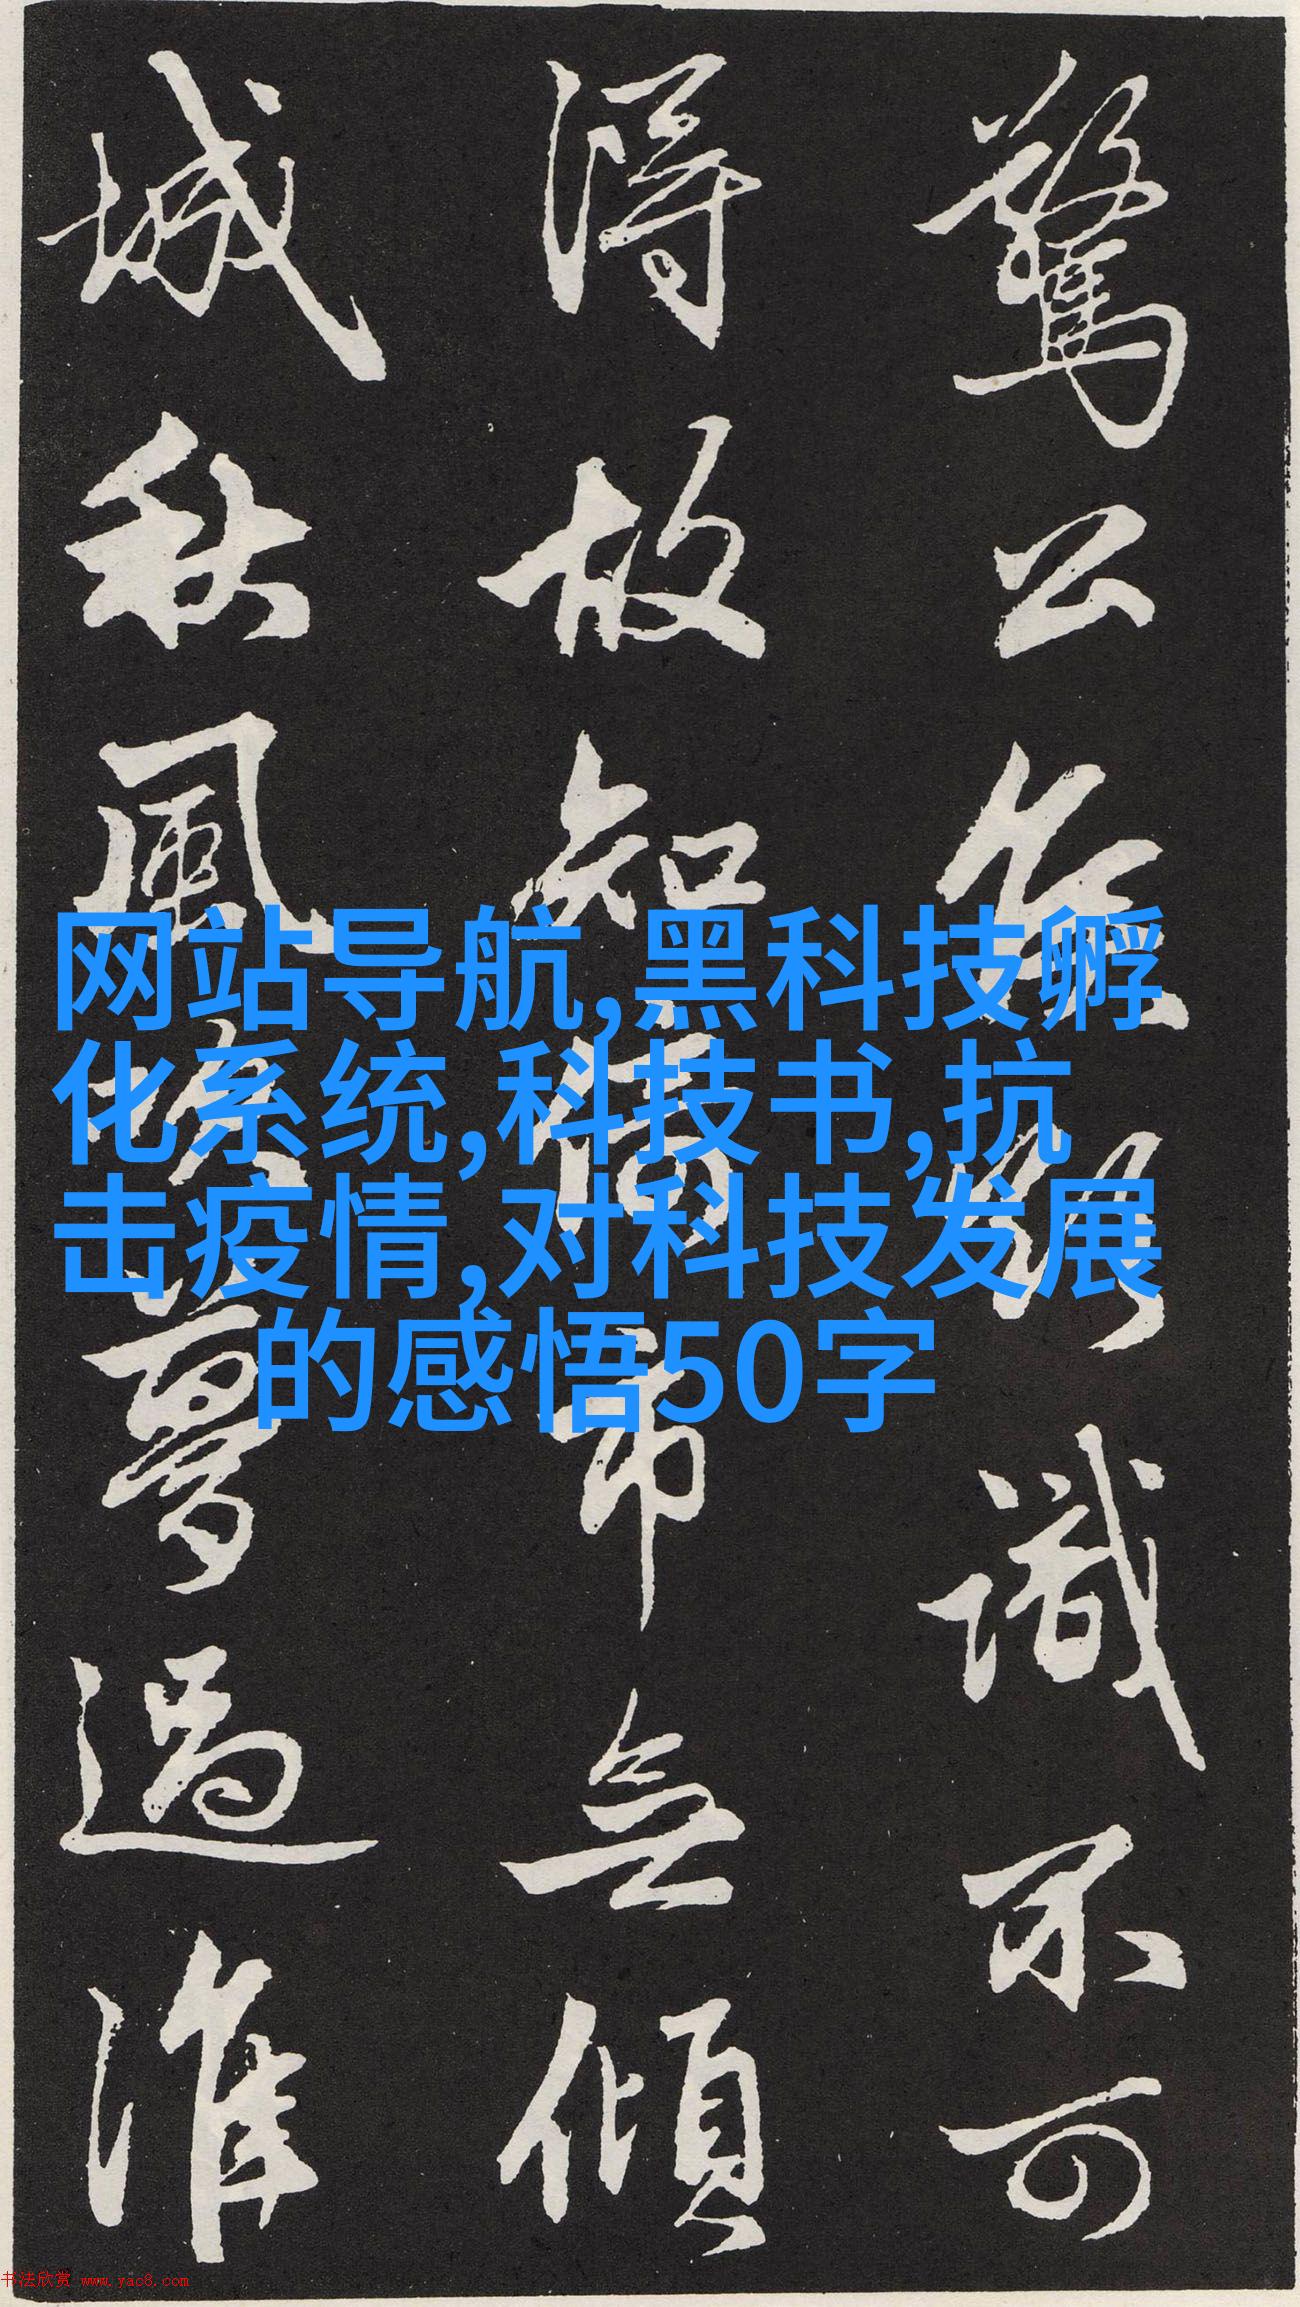 驚公識不可
得故知倚市無傾
城秋風吹夢過淮
网站导航,黑科技孵
化系统,科技书,抗
击疫情,对科技发展
的感悟50字
书法欣赏 www.yac8.com